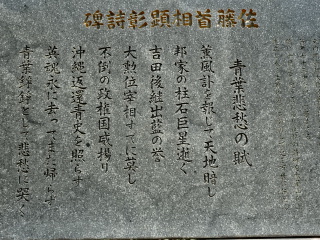 佐藤首相顕彰詩碑
青葉悲愁の賦
薫風訃を報して天地暗し
邦家の柱石巨星逝く
吉田後継出藍の誉
大勲位宰相すでに莫し
不倒の政権国威揚り
沖縄返還青史を照らす
英魂永に去ってまた帰らず
青葉 として悲愁に哭く